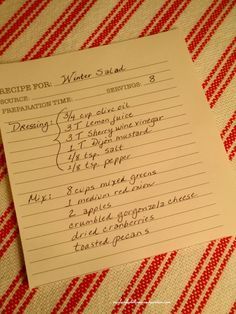 RECIPE FOR: Winter Salad
SOURCE
PREPARATION TIME: SERVINGS: 8
Dressing: 3/4 cup olive oil
3 T Lemon juice
3 T Sherry wine vinegar
1 T Dijon mustard
1/8 tsp. salt
1/8 tsp. pepper
Mix: 8 cups mixed greens
1 medium red onion
2 apples
crumbled gorgonzola cheese
dried cranberries
toasted pecans